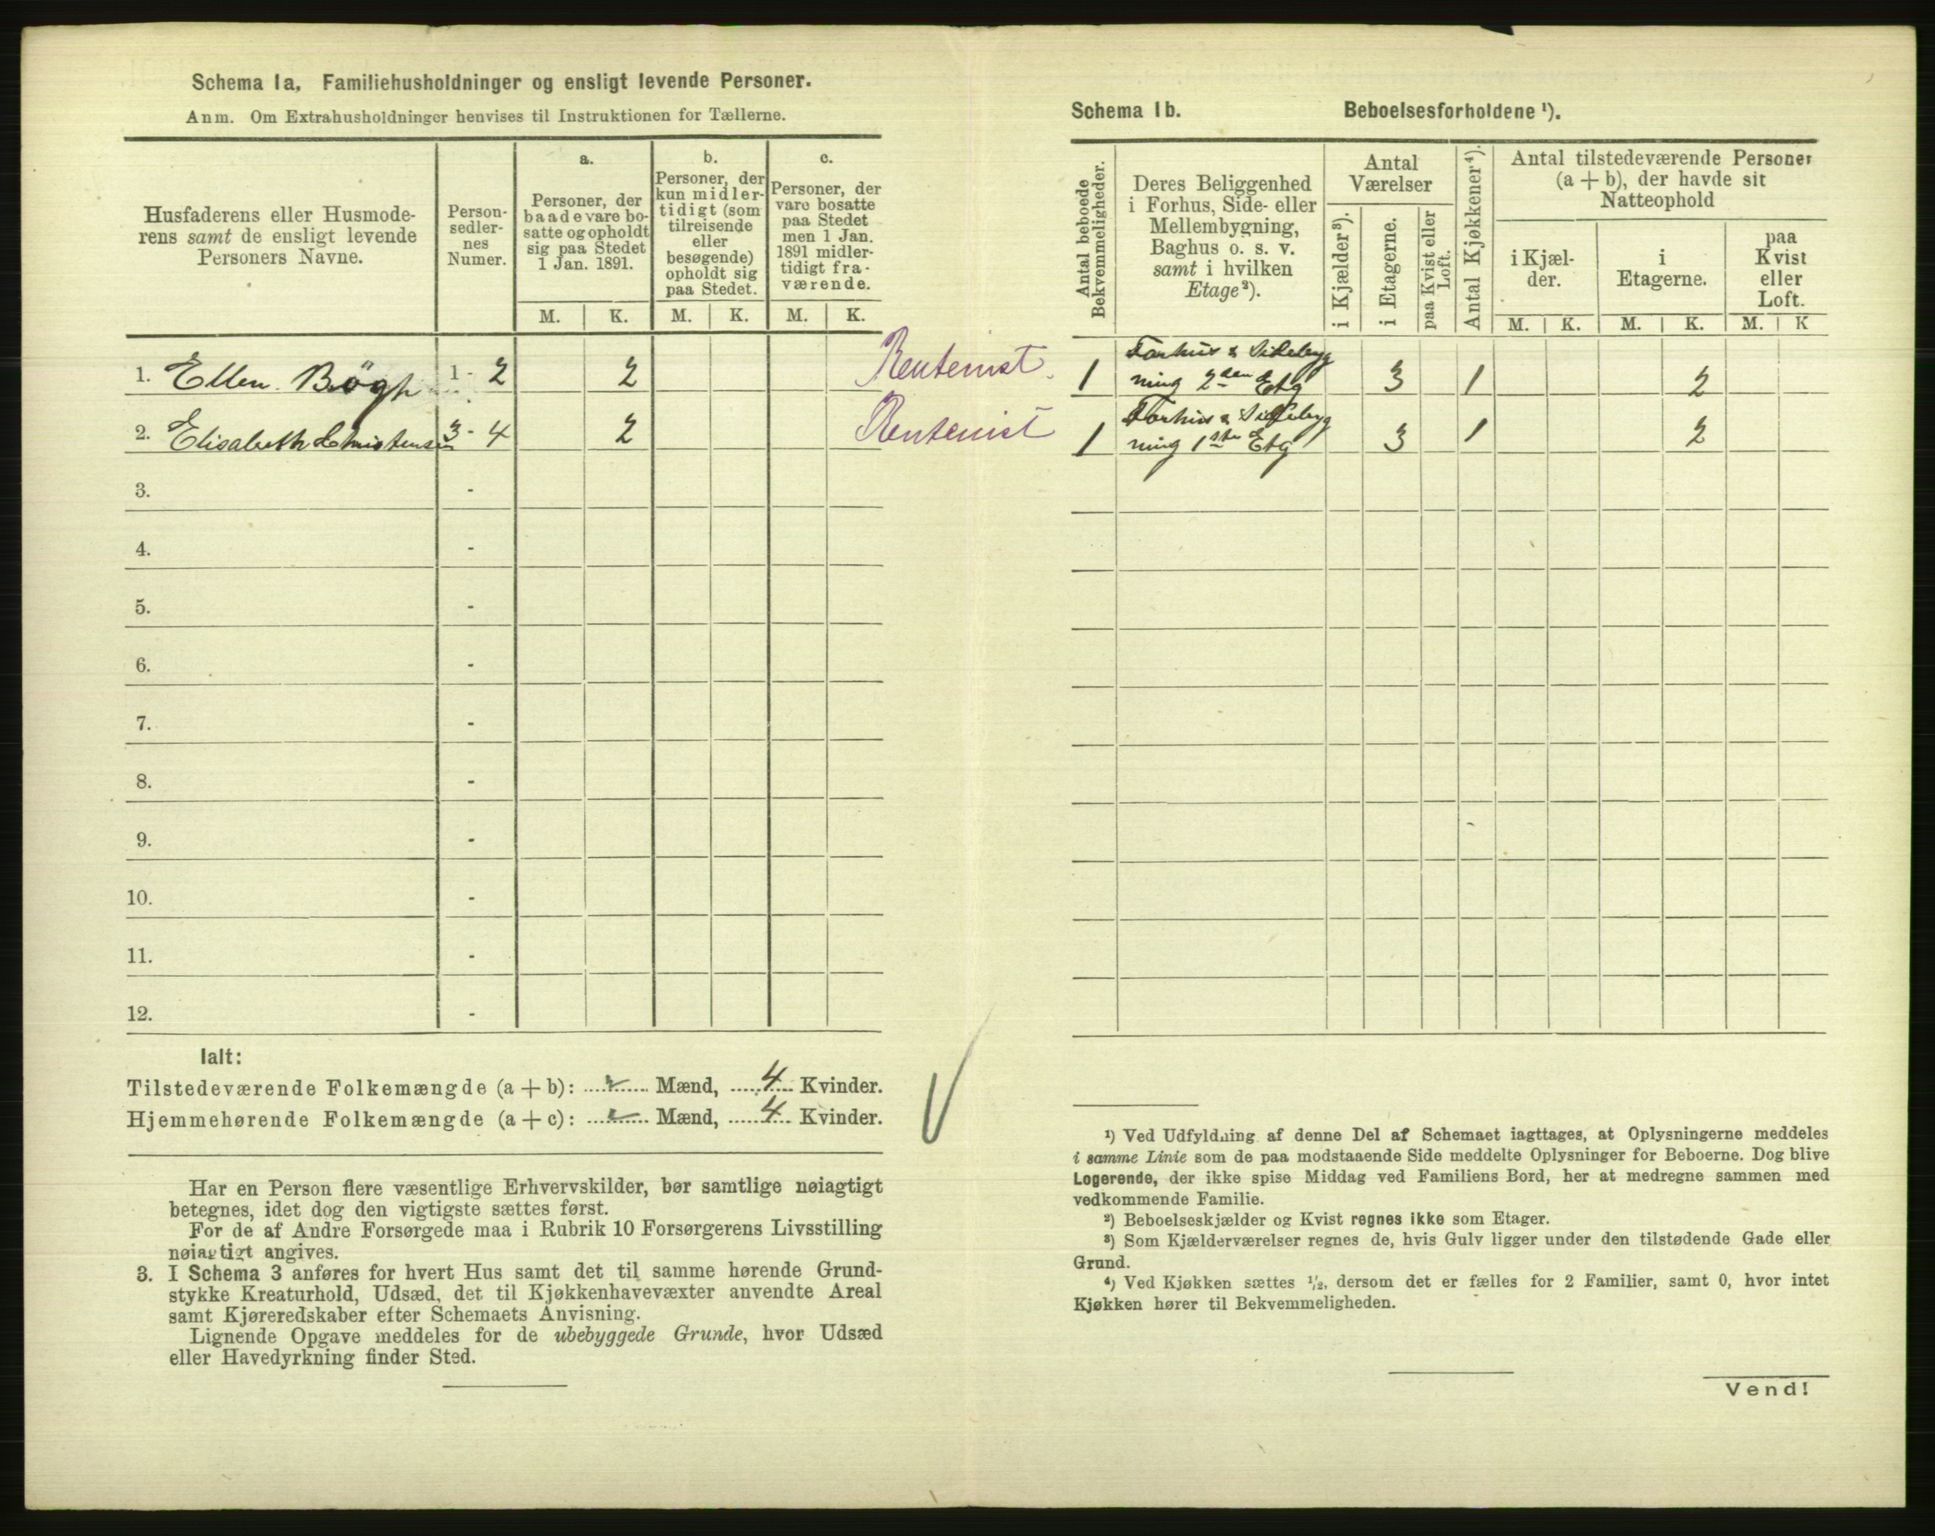 Schema 1a. Familiehusholdninger og ensligt levende Personer.
Anm. Om Extrahusholdninger henvises til Instruktionen for Tællerne.
Husfaderens eller Husmode-
rens samt de ensligt levende
Personers Navne.
Person-
sedler-
nes
Numer.
a.
Personer, der
baade vare bo-
satte og opholdt
sig paa Stedet
1 Jan. 1891.
b.
Personer, der
kun midler-
tidigt (som
tilreisende
eller
besøgende)
opholdt sig
paa Stedet.
c.
Personer, der
vare bosatte
paa Stedet
men 1 Jan.
1891 midler-
tidigt fra-
værende.
M. K. M. K. M. K.
1. Ellen Bøgh 1 - 2 2 Rentenist.
2. Elisabeth Christensen 3 - 4 2 Rentenist
3. -
4. -
5. -
6. -
7. -
8. -
9. -
10. -
11. -
12. -
Ialt:
Tilstedeværende Folkemængde (a + b): ........ Mænd, 4 Kvinder.
Hjemmehørende Folkemængde (a + c): ........ Mænd, 4 Kvinder.
Har en Person flere væsentlige Erhvervskilder, bør samtlige nøiagtigt
betegnes, idet dog den vigtigste sættes først.
For de af Andre Forsørgede maa i Rubrik 10 Forsørgerens Livsstilling
nøiagtigt angives.
3. I Schema 3 anføres for hvert Hus samt det til samme hørende Grund-
stykke Kreaturhold, Udsæd, det til Kjøkkenhavevæxter anvendte Areal
samt Kjøreredskaber efter Schemaets Anvisning.
Lignende Opgave meddeles for de ubebyggede Grunde, hvor Udsæd
eller Havedyrkning finder Sted.
Schema 1b. Beboelsesforholdene ¹).
Antal beboede
Bekvemmeligheder.
Deres Beliggenhed
i Forhus, Side- eller
Mellembygning,
Baghus o. s. v.
samt i hvilken
Etage²).
Antal
Værelser
i Kjælder³).
i Etagerne.
paa Kvist eller
Loft.
Antal Kjøkkener⁴).
Antal tilstedeværende Personer
(a + b), der havde sit
Natteophold
i Kjæl-
der.
i
Etagerne.
paa
Kvist
eller
Loft.
M. K. M. K. M. K
1 Forhus & Sidebyg
ning 2den Etg 3 1 2
1 Forhus & Sidebyg
ning 1ste Etg 3 1 2
¹) Ved Udfyldning af denne Del af Schemaet iagttages, at Oplysningerne meddeles
i samme Linie som de paa modstaaende Side meddelte Oplysninger for Beboerne. Dog blive
Logerende, der ikke spise Middag ved Familiens Bord, her at medregne sammen med
vedkommende Familie.
²) Beboelseskjælder og Kvist regnes ikke som Etager.
³) Som Kjælderværelser regnes de, hvis Gulv ligger under den tilstødende Gade eller
Grund.
⁴) Ved Kjøkken sættes ½, dersom det er fælles for 2 Familier, samt 0, hvor intet
Kjøkken hører til Bekvemmeligheden.
Vend!